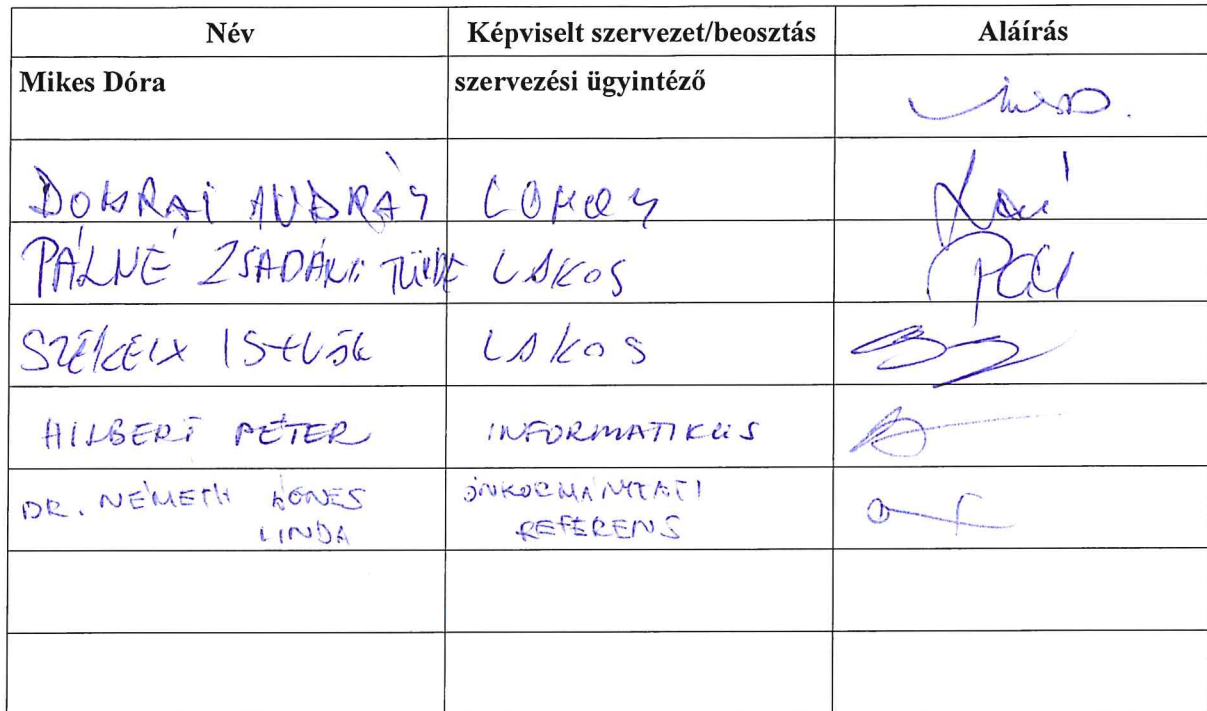 Név Képviselt szervezet/beosztás Aláírás
Mikes Dóra szervezési ügyintéző
ANDRÁS
PÁLNÉ ZSADÁNYI TÜNDE LAKOS
SZÉKELY LAKOS
HILBERT PÉTER INFORMATIKUS
DR. NÉMETH ÁGNES ÖNKORMÁNYZATI
LINDA REFERENS